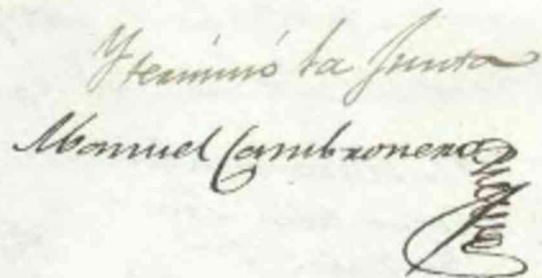 Y terminó la Junta
Manuel Cambronero